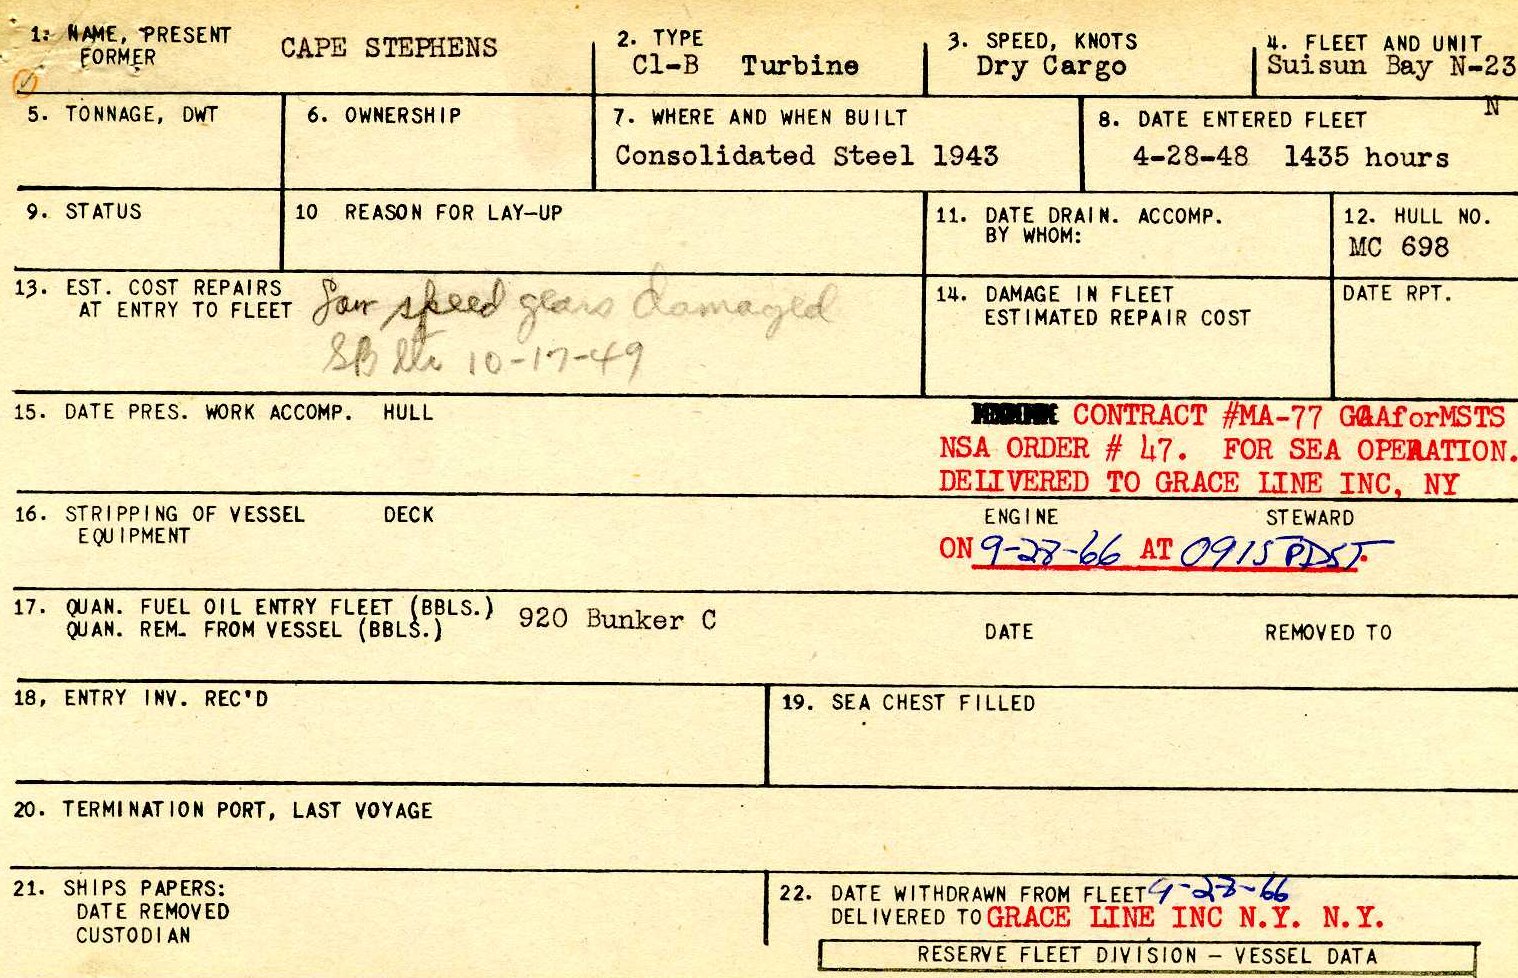 1. NAME, PRESENT CAPE STEPHENS
FORMER
2. TYPE
C1-B Turbine
3. SPEED, KNOTS
Dry Cargo
4. FLEET AND UNIT
Suisun Bay N-23
N
5. TONNAGE, DWT
6. OWNERSHIP
7. WHERE AND WHEN BUILT
Consolidated Steel 1943
8. DATE ENTERED FLEET
4-28-48 1435 hours
9. STATUS
10 REASON FOR LAY-UP
11. DATE DRAIN. ACCOMP.
BY WHOM:
12. HULL NO.
MC 698
13. EST. COST REPAIRS
AT ENTRY TO FLEET
speed gears damaged
SB ltr 10-17-49
14. DAMAGE IN FLEET
ESTIMATED REPAIR COST
DATE RPT.
15. DATE PRES. WORK ACCOMP. HULL
CONTRACT #MA-77 GAAforMSTS
NSA ORDER # 47. FOR SEA OPERATION.
DELIVERED TO GRACE LINE INC, NY
16. STRIPPING OF VESSEL DECK ENGINE STEWARD
EQUIPMENT
ON 9-28-66 AT 0915 PDST.
17. QUAN. FUEL OIL ENTRY FLEET (BBLS.) 920 Bunker C
QUAN. REM. FROM VESSEL (BBLS.) DATE REMOVED TO
18, ENTRY INV. REC'D
19. SEA CHEST FILLED
20. TERMINATION PORT, LAST VOYAGE
21. SHIPS PAPERS:
DATE REMOVED
CUSTODIAN
22. DATE WITHDRAWN FROM FLEET 9-28-66
DELIVERED TO GRACE LINE INC N.Y. N.Y.
RESERVE FLEET DIVISION - VESSEL DATA